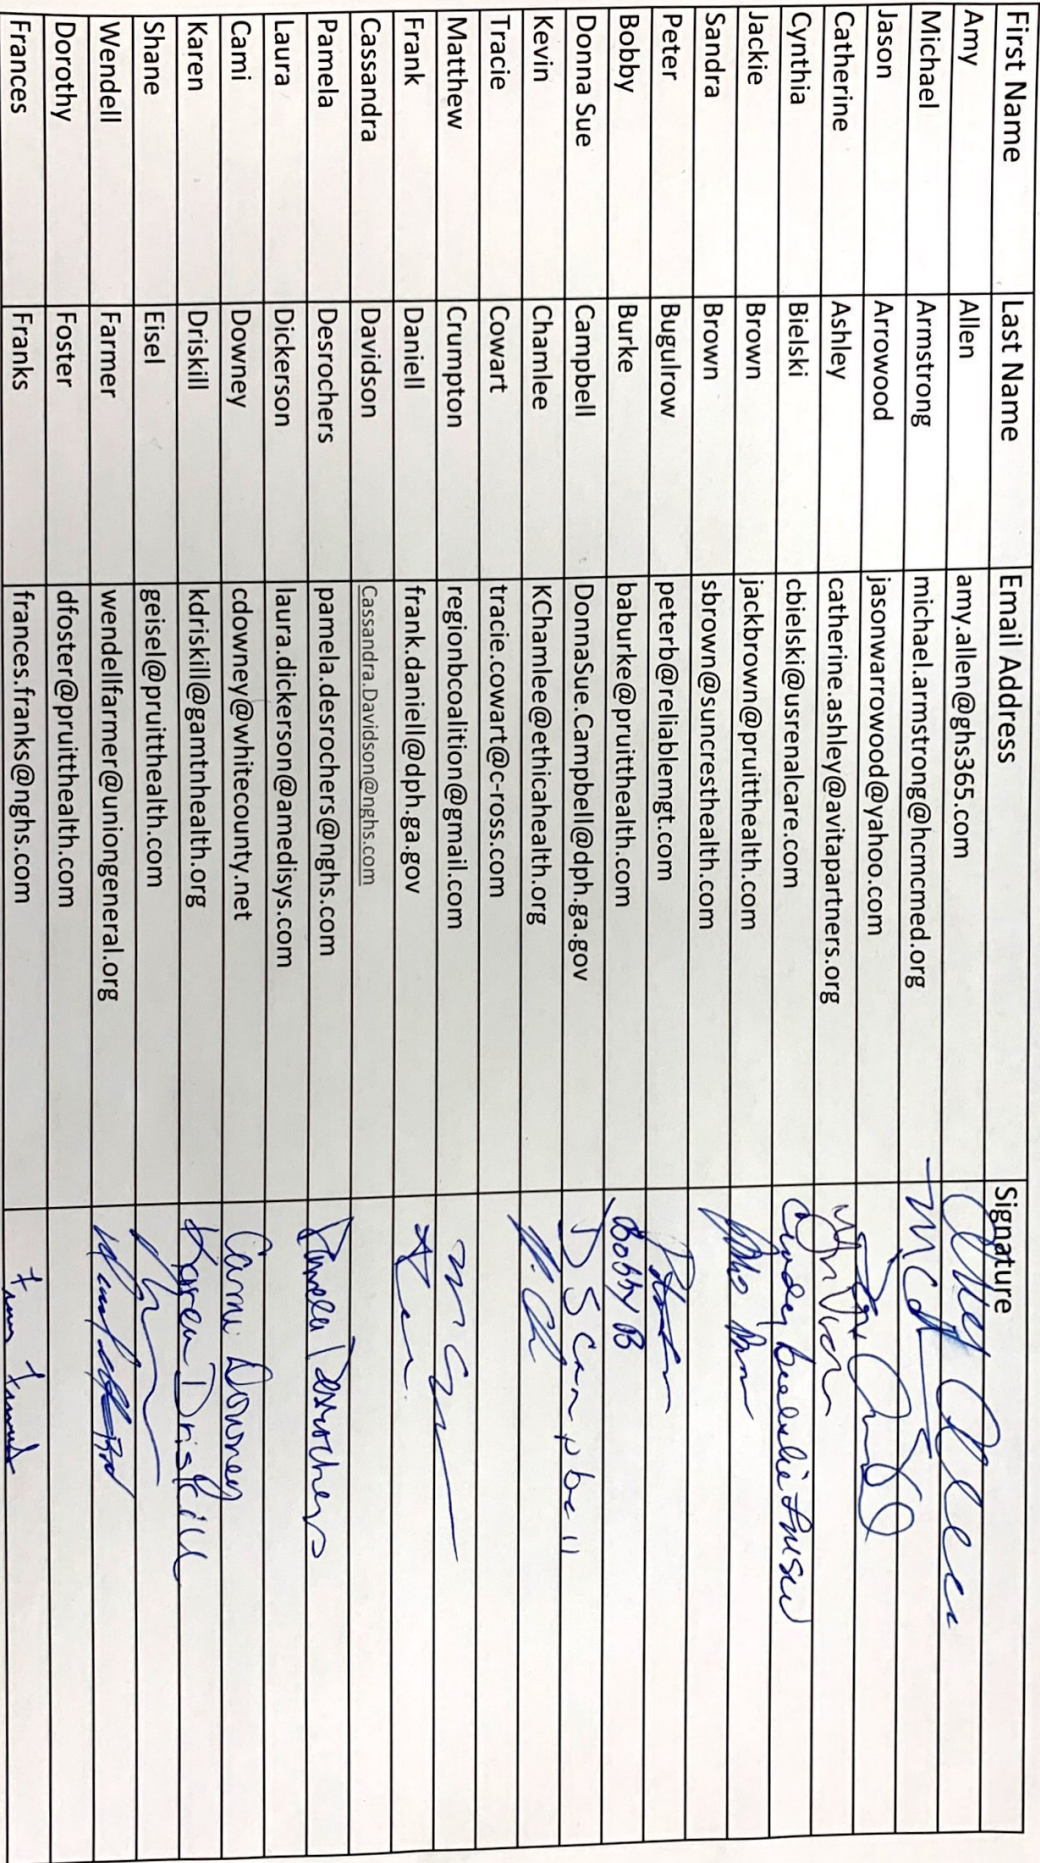 First Name Last Name Email Address Signature
Amy Allen amy.allen@ghs365.com Amy Allen
Michael Armstrong michael.armstrong@hcmcmed.org
Jason Arrowood jasonwarrowood@yahoo.com
Catherine Ashley catherine.ashley@avitapartners.org
Cynthia Bielski cbielski@usrenalcare.com Cindy
Jackie Brown jackbrown@pruitthealth.com
Sandra Brown sbrown@suncresthealth.com
Peter Bugulrow peterb@reliablemgt.com
Bobby Burke baburke@pruitthealth.com Bobby B
Donna Sue Campbell DonnaSue.Campbell@dph.ga.gov D S Campbell
Kevin Chamlee KChamlee@ethicahealth.org K. Ch
Tracie Cowart tracie.cowart@c-ross.com
Matthew Crumpton regionbcoalition@gmail.com
Frank Daniell frank.daniell@dph.ga.gov
Cassandra Davidson Cassandra.Davidson@nghs.com
Pamela Desrochers pamela.desrochers@nghs.com Pamela Desrochers
Laura Dickerson laura.dickerson@amedisys.com
Cami Downey cdowney@whitecounty.net Cami Downey
Karen Driskill kdriskill@gamtnhealth.org Karen Driskill
Shane Eisel geisel@pruitthealth.com
Wendell Farmer wendellfarmer@uniongeneral.org
Dorothy Foster dfoster@pruitthealth.com
Frances Franks frances.franks@nghs.com